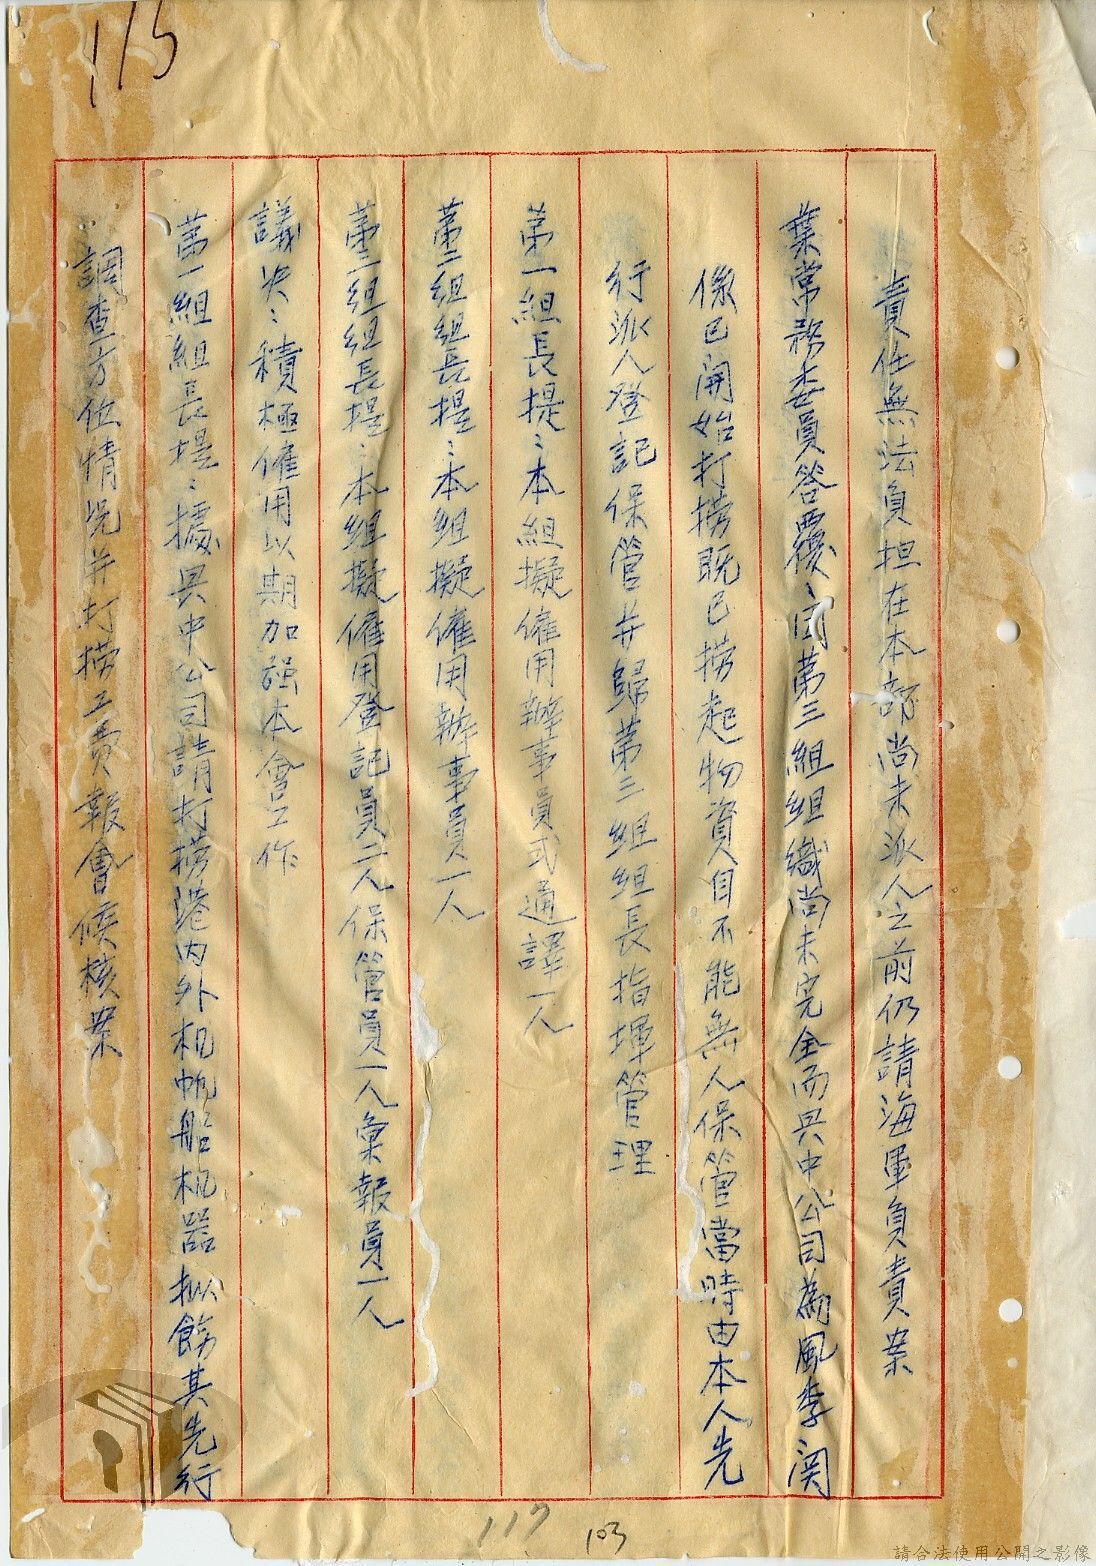 115
責任無法負担在本部尚未派人之前仍請海軍負責案
葉常務委員答覆:因第三組組織尚未完全而興中公司為風季関
係已開始打撈既已撈起物資自不能無人保管當時由本人先
行派人登記保管并歸第三組組長指揮管理
第一組長提:本組擬僱用辦事員弍通譯一人
第二組組長提:本組擬僱用辦事員一人
第三組組長提:本組擬僱用登記員二人保管員一人彙報員一人
議決:積極僱用以期加強本會工作
第一組組長提:據興中公司請打撈港内外机帆船机器拟飭其先行
調查方位情况并打撈工費報會候核案
117
103
請合法使用公開之影像